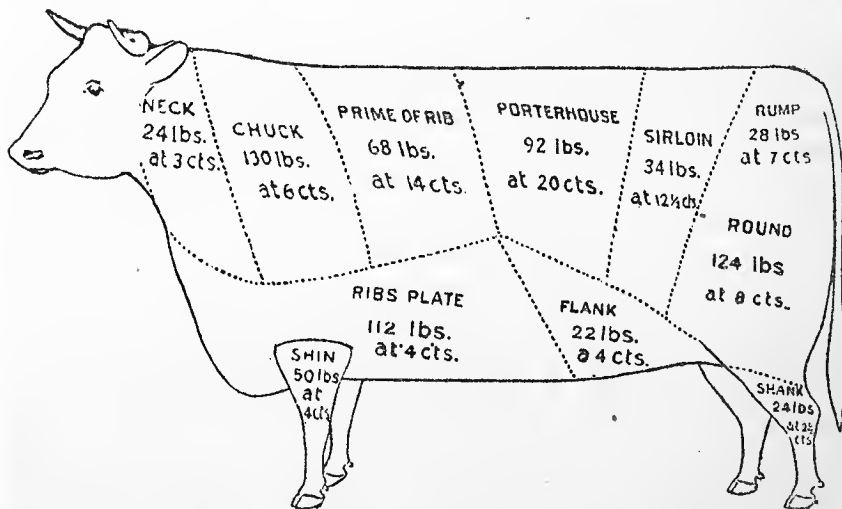 NECK
24 lbs.
at 3 cts.
CHUCK
130 lbs.
at 6 cts.
PRIME OF RIB
68 lbs.
at 14 cts.
PORTERHOUSE
92 lbs.
at 20 cts.
SIRLOIN
34 lbs.
at 12½ cts.
RUMP
28 lbs
at 7 cts
ROUND
124 lbs
at 8 cts.
RIBS PLATE
112 lbs.
at 4 cts.
FLANK
22 lbs.
a 4 cts.
SHIN
50 lbs
at
4 cts
SHANK
24 lbs
at 2½
cts